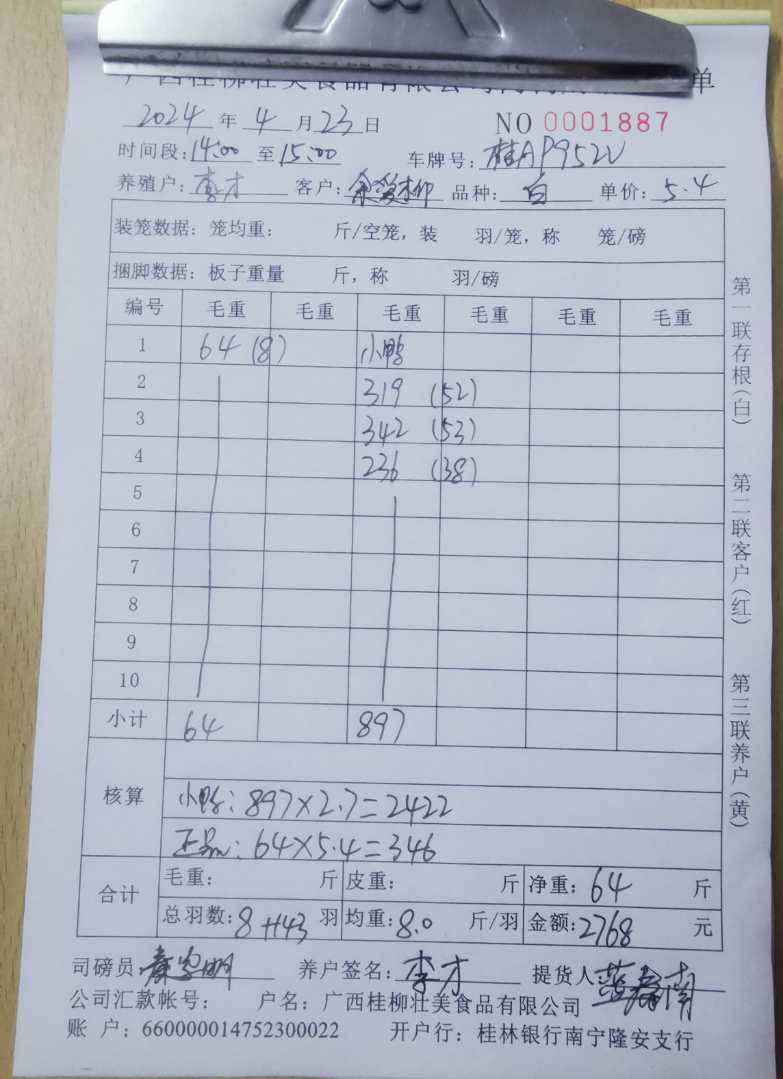 广西桂柳壮美食品有限公司 单
2024 年 4 月 23 日 NO 0001887
时间段: 14:00 至 15:00 车牌号: 桂AP952V
养殖户: 李才 客户: 品种: 白 单价: 5.4
装笼数据: 笼均重: 斤/空笼, 装 羽/笼, 称 笼/磅
捆脚数据: 板子重量 斤, 称 羽/磅
编号 毛重 毛重 毛重 毛重 毛重 毛重
1 64 (8) 小鸭
2 319 (52)
3 342 (53)
4 236 (38)
5
6
7
8
9
10
小计 64 897
核算
小鸭: 897×2.7=2422
正品: 64×5.4=346
合计 毛重: 斤 皮重: 斤 净重: 64 斤
总羽数: 8+143 羽 均重: 8.0 斤/羽 金额: 2768 元
司磅员: 养户签名: 李才 提货人
公司汇款帐号: 户名: 广西桂柳壮美食品有限公司
账 户: 660000014752300022 开户行: 桂林银行南宁隆安支行
第一联存根(白)
第二联客户(红)
第三联养户(黄)